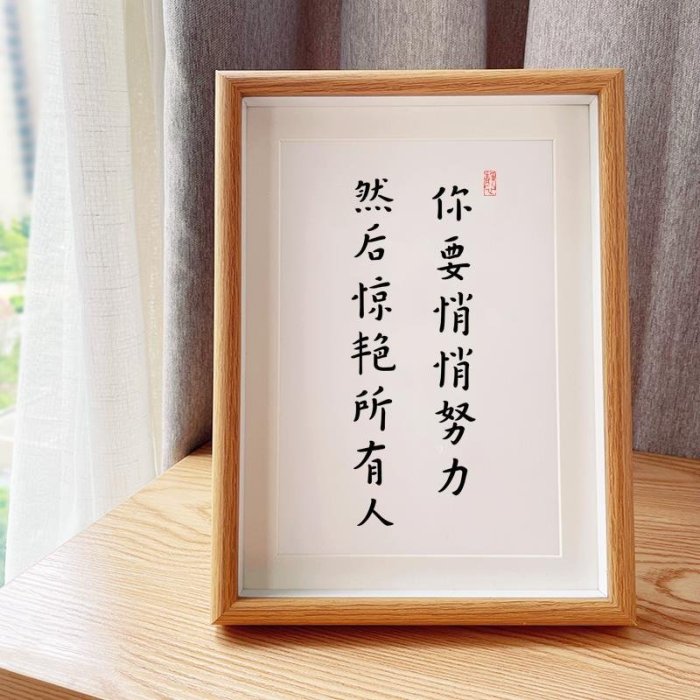 你要悄悄努力
然后惊艳所有人